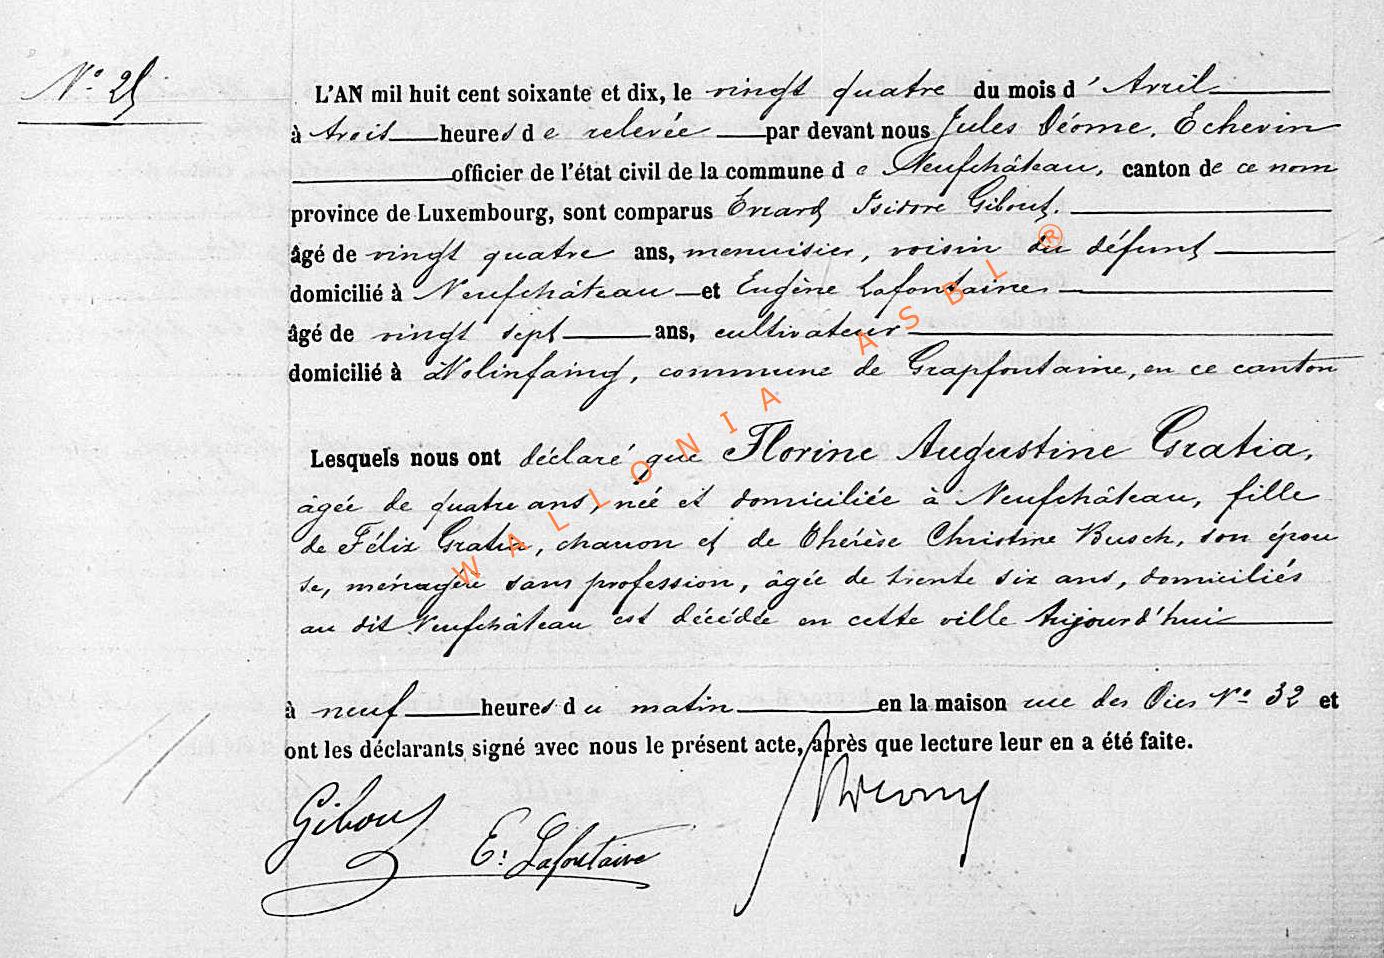 N° 25
L'AN mil huit cent soixante et dix, le vingt quatre du mois d'Avril
à trois heures de relevée par devant nous Jules Déome, Echevin
officier de l'état civil de la commune de Neufchâteau, canton de ce nom
province de Luxembourg, sont comparus Evrard Isidore Gibout.
âgé de vingt quatre ans, menuisier, voisin du défunt
domicilié à Neufchâteau et Eugène Lafontaine
âgé de vingt sept ans, cultivateur
domicilié à Nolinfaing, commune de Grapfontaine, en ce canton
Lesquels nous ont déclaré que Florine Augustine Gratia,
âgée de quatre ans, née et domiciliée à Neufchâteau, fille
de Félix Gratia, charron et de Thérèse Christine Busch, son épou
se, ménagère sans profession, âgée de trente six ans, domiciliés
au dit Neufchâteau est décédée en cette ville Aujourd'hui
à neuf heures du matin en la maison rue des N° 32 et
ont les déclarants signé avec nous le présent acte, après que lecture leur en a été faite.
Gibout
E: Lafontaine
WALLONIA ASBL ®